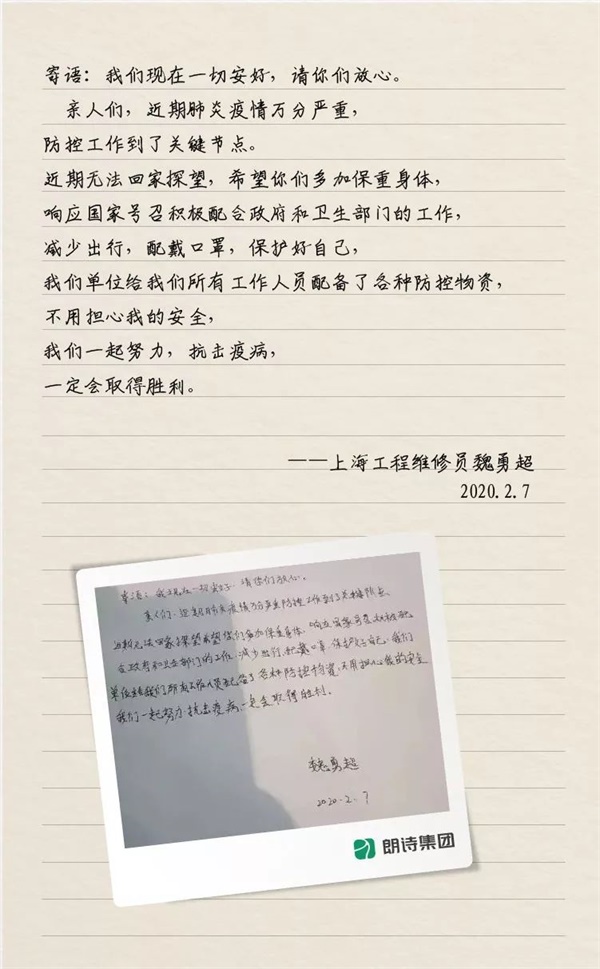 寄语：我们现在一切安好，请你们放心。
亲人们，近期肺炎疫情万分严重，
防控工作到了关键节点。
近期无法回家探望，希望你们多加保重身体，
响应国家号召积极配合政府和卫生部门的工作，
减少出行，配戴口罩，保护好自己，
我们单位给我们所有工作人员配备了各种防控物资，
不用担心我的安全，
我们一起努力，抗击疫病，
一定会取得胜利。
——上海工程维修员魏勇超
2020.2.7
寄语：我现在一切安好，请你们放心。
亲人们，近期肺炎疫情万分严重防控工作到了关键节点、
近期无法回家探望希望你们多加保重身体、响应国家号召积极配
合政府和卫生部门的工作，减少出行，配戴口罩，保护好自己，我们
单位给我们所有工作人员配备了各种防控物资，不用担心我的安全
我们一起努力，抗击疫病，一定会取得胜利。
魏勇超
2020.2.7
朗诗集团